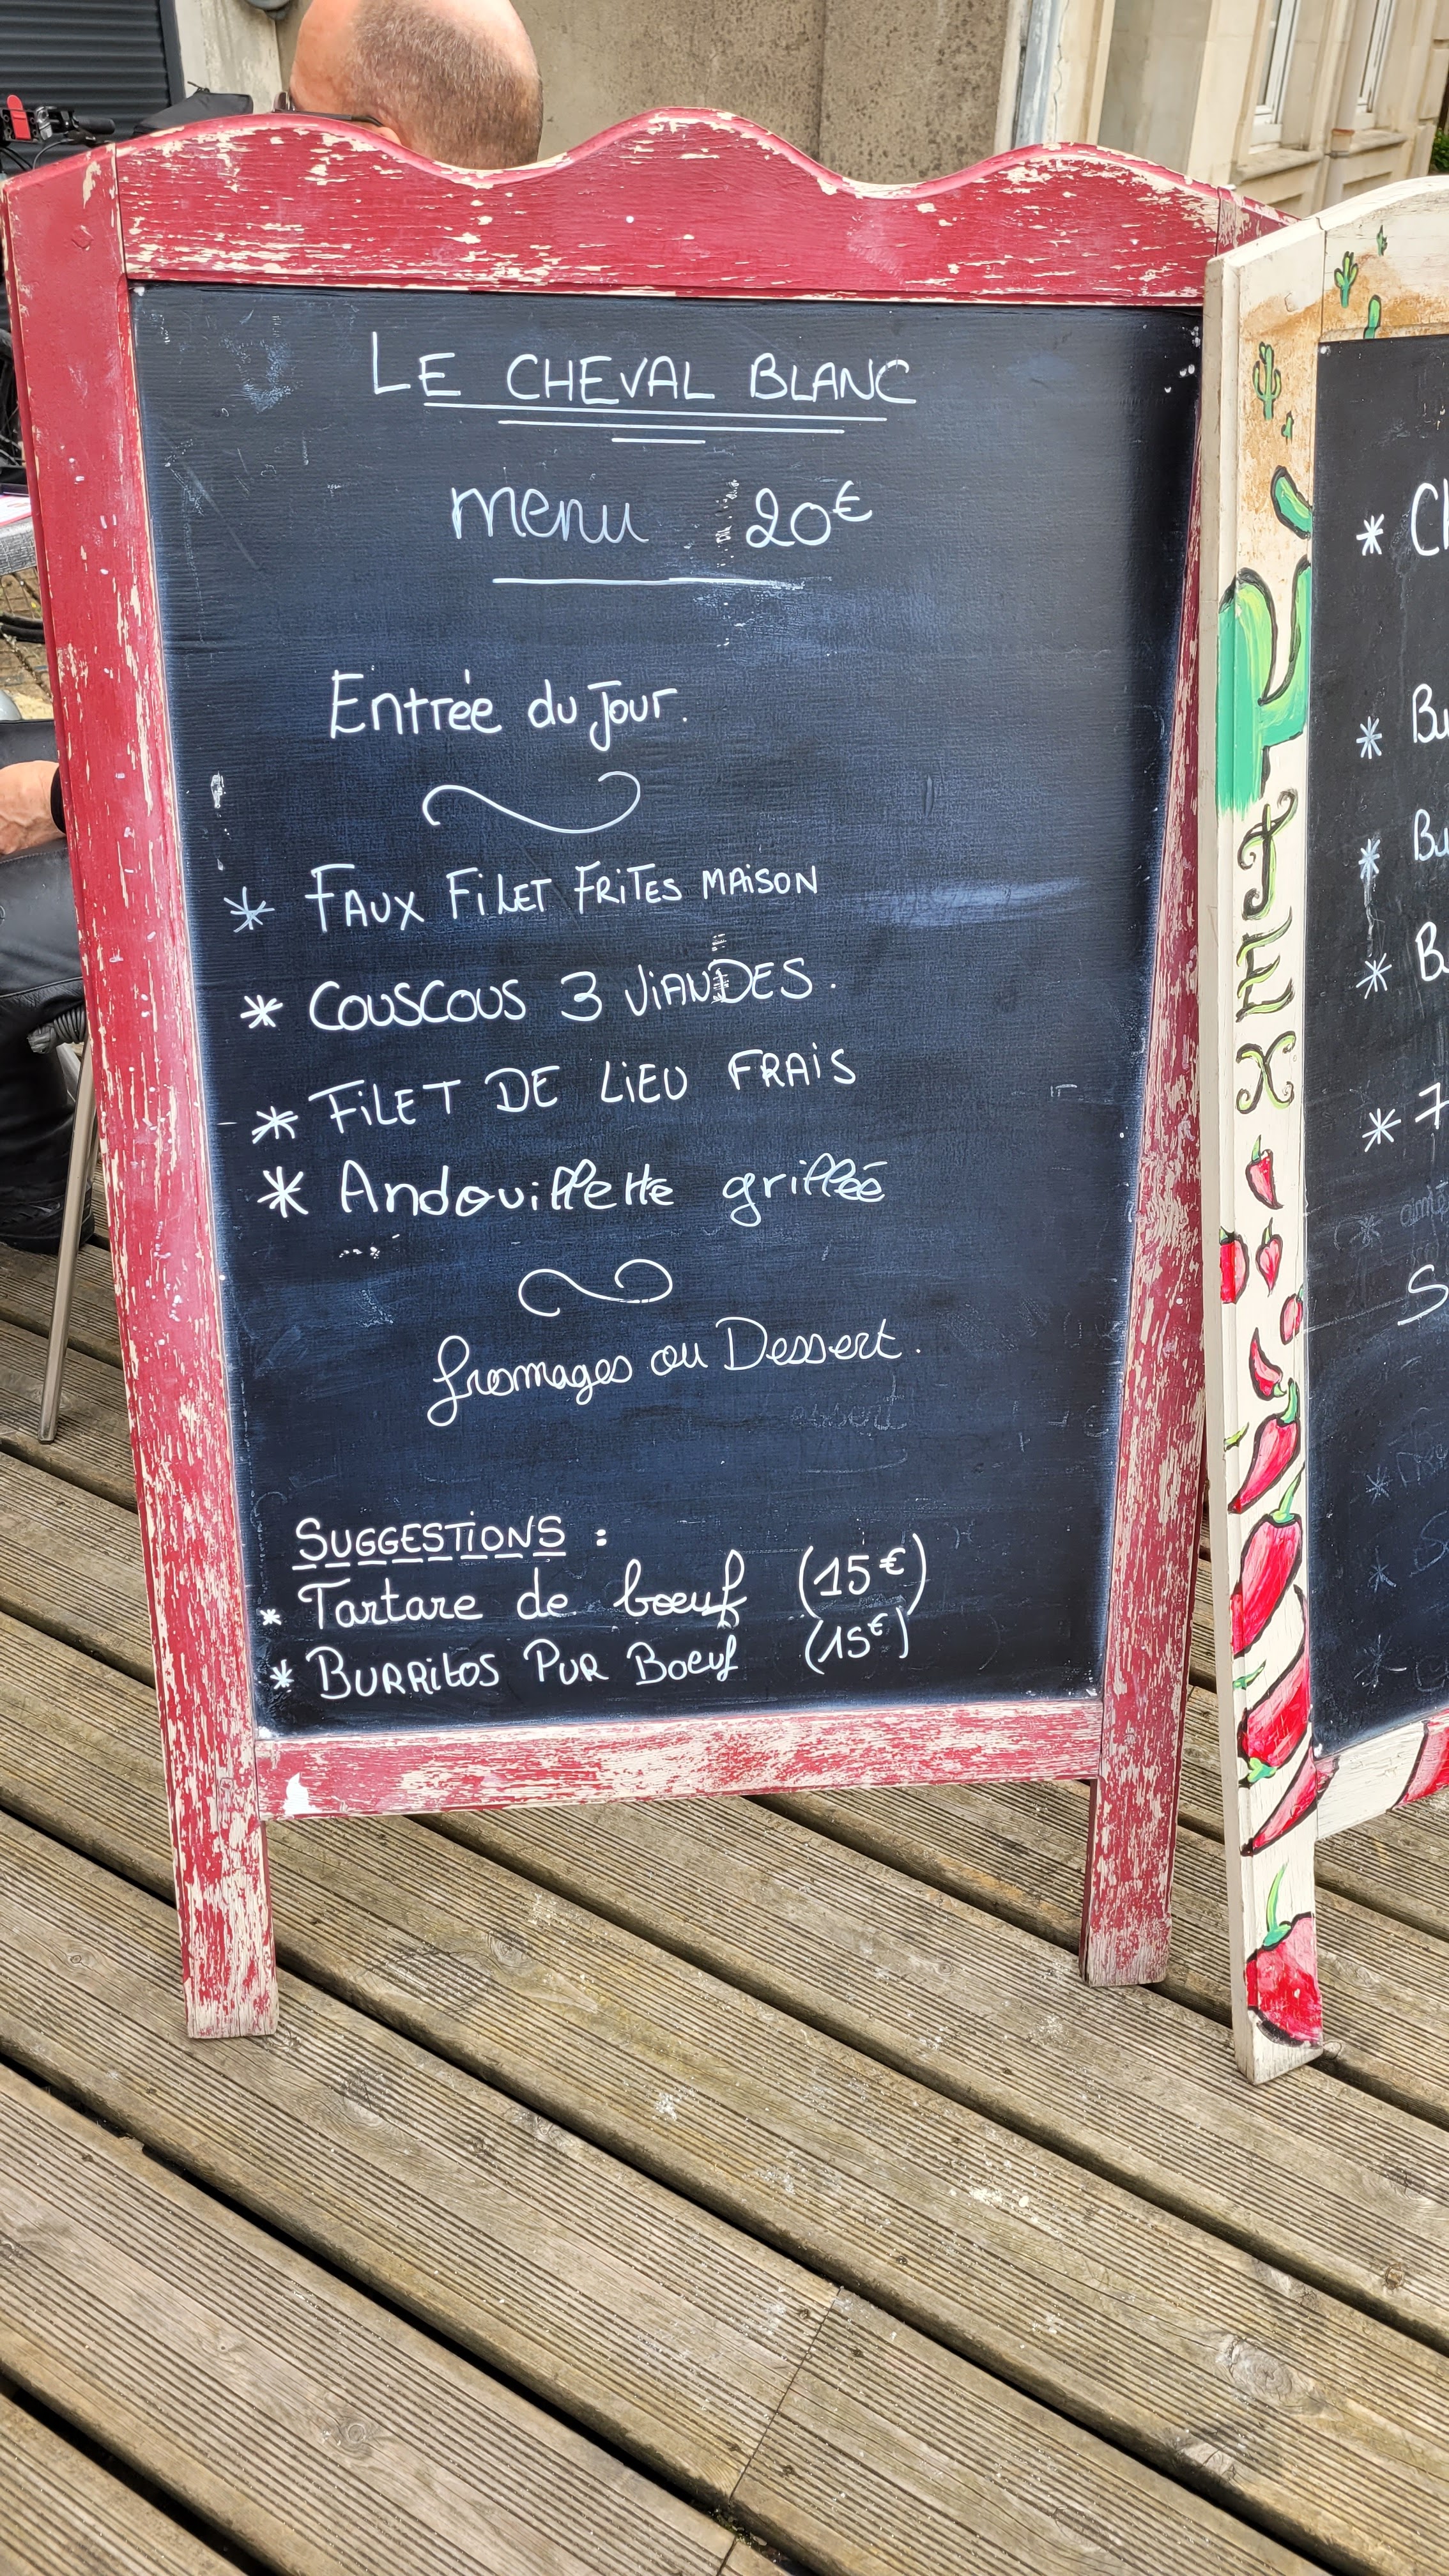 LE CHEVAL BLANC
menu 20€
Entrée du Jour.
* FAUX FILET FRITES MAISON
* COUSCOUS 3 VIANDES.
* FILET DE LIEU FRAIS
* Andouillette grillée
fromages ou Dessert.
SUGGESTIONS :
* Tartare de boeuf (15€)
* BURRITOS PUR BOEUf (15€)
TEX